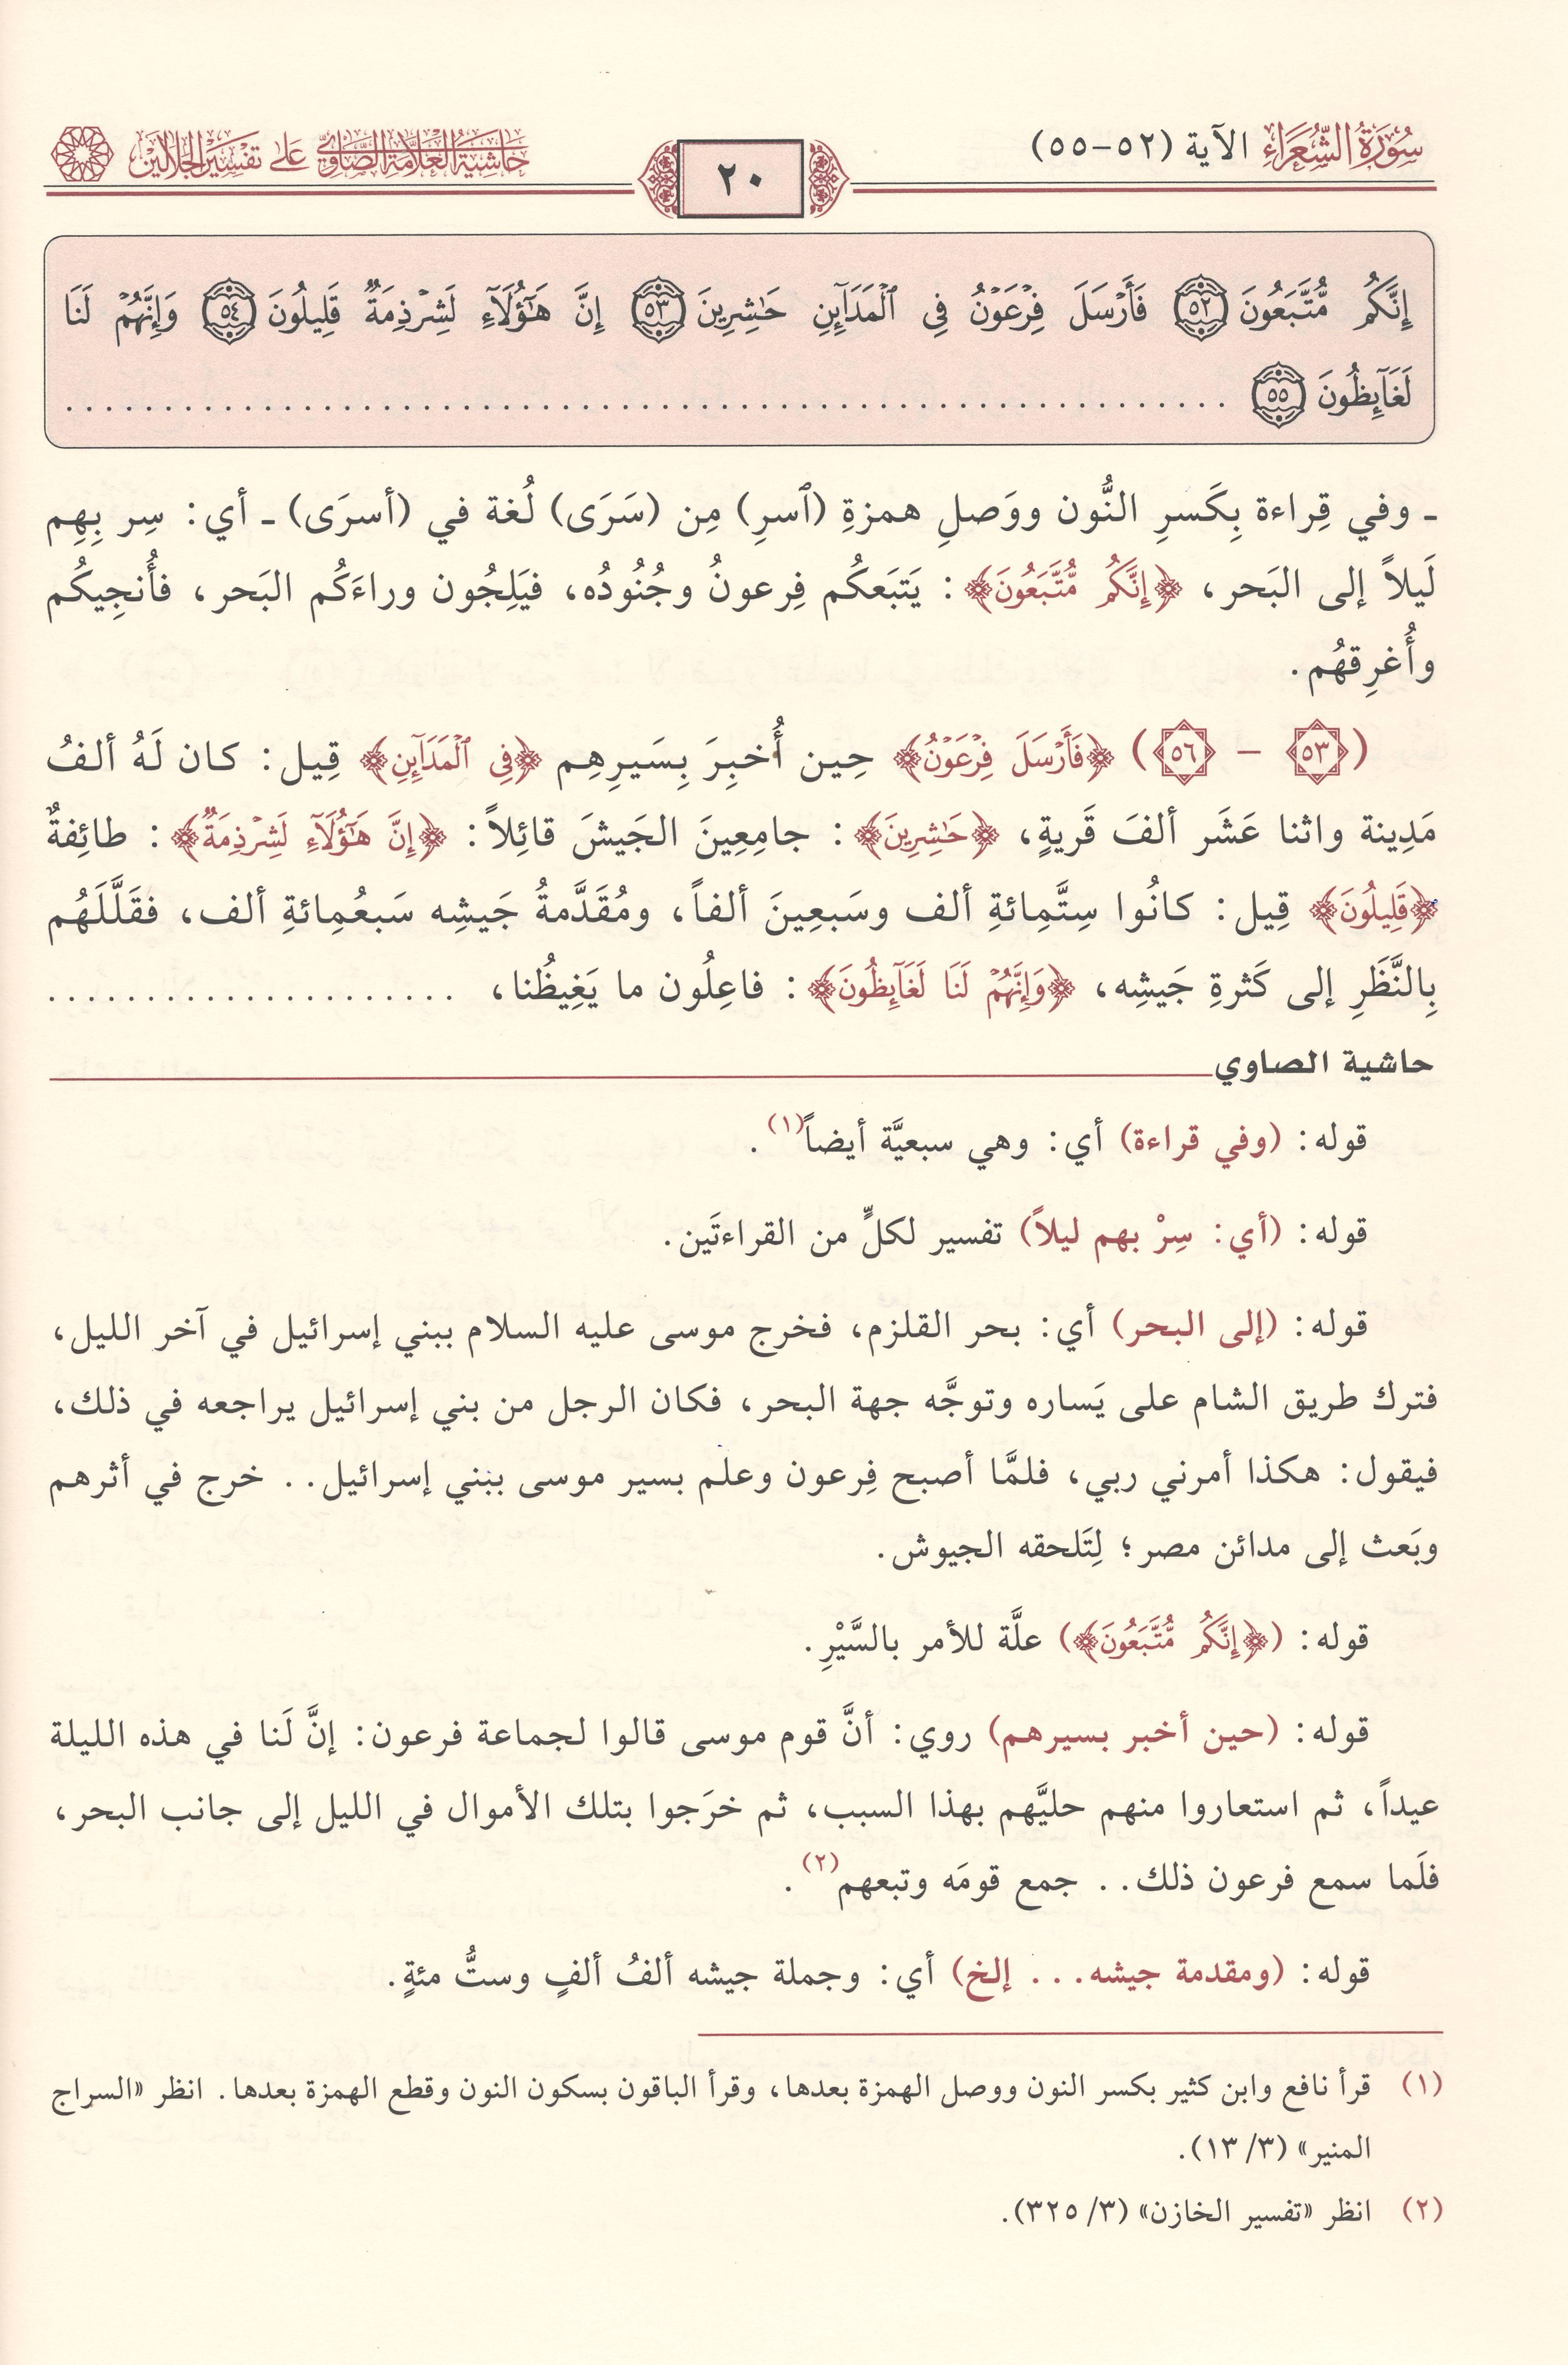 سُورَةُ الشُّعَرَاءِ الآية (٥٢-٥٥)
٢٠
حَاشِيَةُ العَلَّامَةِ الصَّاوِيِّ عَلَى تَفْسِيرِ الجَلَالَيْنِ
إِنَّكُم مُّتَّبَعُونَ ٥٢ فَأَرۡسَلَ فِرۡعَوۡنُ فِي ٱلۡمَدَآئِنِ حَٰشِرِينَ ٥٣ إِنَّ هَٰٓؤُلَآءِ لَشِرۡذِمَةٞ قَلِيلُونَ ٥٤ وَإِنَّهُمۡ لَنَا
لَغَآئِظُونَ ٥٥ ............................................................
ـ وفي قِراءة بِكَسرِ النُّون ووَصلِ همزةِ (ٱسرِ) مِن (سَرَى) لُغة في (أسرَى) ـ أي: سِر بِهِم
لَيلاً إلى البَحر، ﴿إِنَّكُم مُّتَّبَعُونَ﴾: يَتبَعكُم فِرعونُ وجُنُودُه، فيَلِجُون وراءَكُم البَحر، فأُنجِيكُم
وأُغرِقهُم.
(٥٣ – ٥٦) ﴿فَأَرۡسَلَ فِرۡعَوۡنُ﴾ حِين أُخبِرَ بِسَيرِهِم ﴿فِي ٱلۡمَدَآئِنِ﴾ قِيل: كان لَهُ ألفُ
مَدِينة واثنا عَشَر ألفَ قَريةٍ، ﴿حَٰشِرِينَ﴾: جامِعِينَ الجَيشَ قائِلاً: ﴿إِنَّ هَٰٓؤُلَآءِ لَشِرۡذِمَةٞ﴾: طائِفةٌ
﴿قَلِيلُونَ﴾ قِيل: كانُوا سِتَّمِائةِ ألف وسَبعِينَ ألفاً، ومُقَدَّمةُ جَيشِه سَبعُمِائةِ ألف، فقَلَّلَهُم
بِالنَّظَرِ إلى كَثرةِ جَيشِه، ﴿وَإِنَّهُمۡ لَنَا لَغَآئِظُونَ﴾: فاعِلُون ما يَغِيظُنا، .....................
حاشية الصاوي
قوله: (وفي قراءة) أي: وهي سبعيَّة أيضاً(١).
قوله: (أي: سِرْ بهم ليلاً) تفسير لكلٍّ من القراءتَين.
قوله: (إلى البحر) أي: بحر القلزم، فخرج موسى عليه السلام ببني إسرائيل في آخر الليل،
فترك طريق الشام على يَساره وتوجَّه جهة البحر، فكان الرجل من بني إسرائيل يراجعه في ذلك،
فيقول: هكذا أمرني ربي، فلمَّا أصبح فِرعون وعلم بسير موسى ببني إسرائيل.. خرج في أثرهم
وبَعث إلى مدائن مصر؛ لِتَلحقه الجيوش.
قوله: (﴿إِنَّكُم مُّتَّبَعُونَ﴾) علَّة للأمر بالسَّيْرِ.
قوله: (حين أخبر بسيرهم) روي: أنَّ قوم موسى قالوا لجماعة فرعون: إنَّ لَنا في هذه الليلة
عيداً، ثم استعاروا منهم حليَّهم بهذا السبب، ثم خرَجوا بتلك الأموال في الليل إلى جانب البحر،
فلَما سمع فرعون ذلك.. جمع قومَه وتبعهم(٢).
قوله: (ومقدمة جيشه... إلخ) أي: وجملة جيشه ألفُ ألفٍ وستُّ مئةٍ.
(١) قرأ نافع وابن كثير بكسر النون ووصل الهمزة بعدها، وقرأ الباقون بسكون النون وقطع الهمزة بعدها. انظر «السراج
المنير» (٣/ ١٣).
(٢) انظر «تفسير الخازن» (٣/ ٣٢٥).